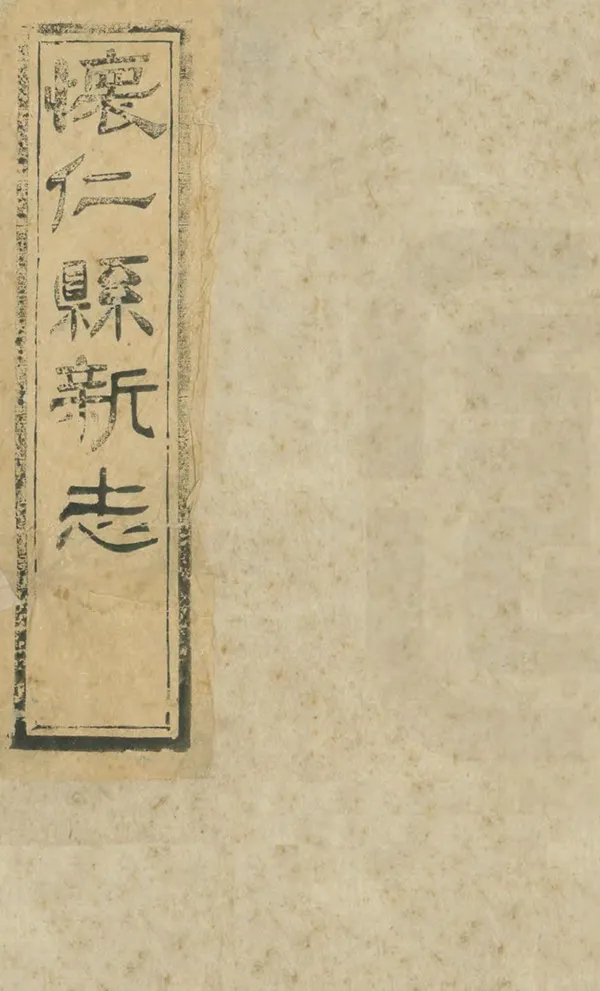 懷仁縣新志